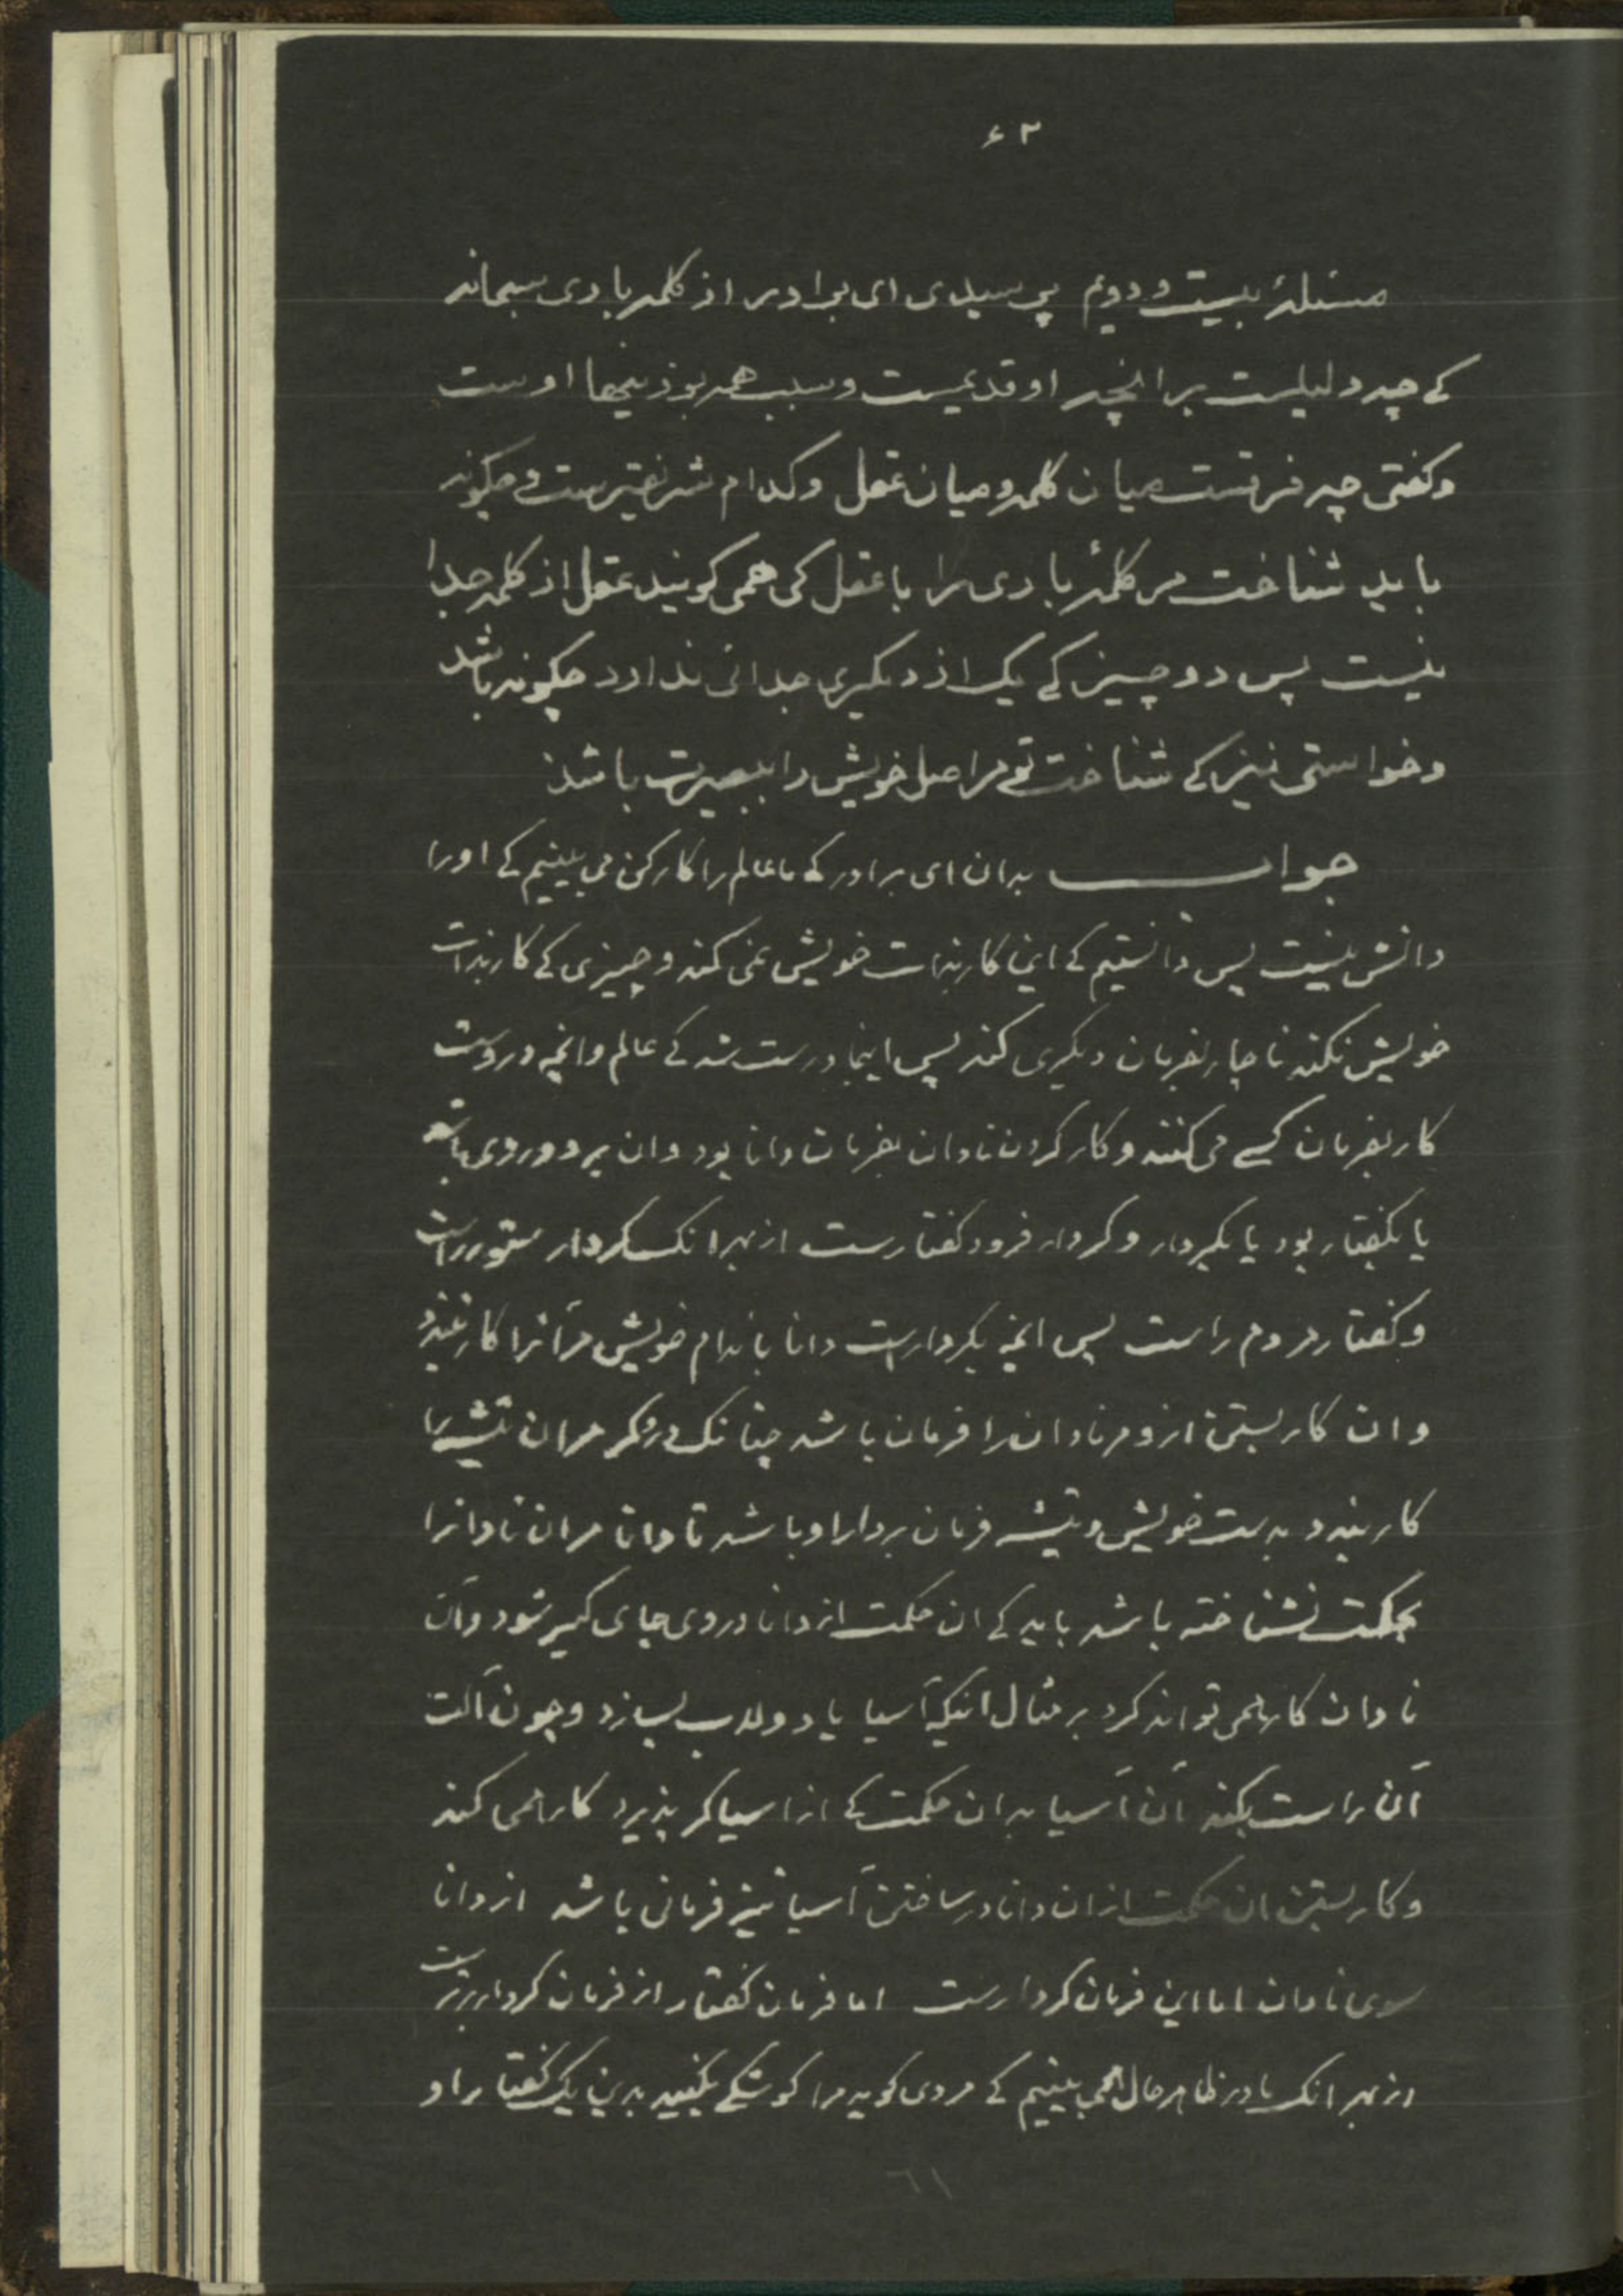 ۶۲
مسئلهٔ بیست و دویم پرسیدی ای برادر از کلمه باری سبحانه
کے چه دلیلست بر انچه او قدیمست و سبب همه بوذنیها اوست
وکفتی چه فرقست میان کلمه و میان عقل وکدام شریفترست و چکونه
باید شناخت مر کلمهٔ باری را با عقل کی همی کویند عقل از کلمه جدا
نیست پس دو چیز کے یک از دیکری جدائی ندارد چکونه باشد
وخواستی نیز کے شناخت تو مر اصل خویش را ببصیرت باشذ
جواب بدان ای برادر کے ما عالم را کارکن می بینیم کے او را
دانش نیست پس دانستیم کے اینجا کار بذات خویش نمی کند و چیزی کے کار بذات
خویش نکند ناچار بفرمان دیکری کند پس اینجا درست شد کے عالم وانچه دروست
کار بفرمان کسے می کنند وکار کردن نادان بفرمان دانا بود وان بر دو روی باشد
یا بکفتار بود یا بکردار وکردار فرود کفتارست از بهر انک کردار ستور راست
وکفتار مردم راست پس انچه بکردارست دانا باندام خویش مر آنرا کار بندد
وان کار بستن ازو مر نادان را فرمان باشد چنانک درو کر مران تیشه را
کار بندد بدست خویش و تیشه فرمان بردار او باشد تا دانا مران نادانرا
بحکمت نشناخته باشد باید کے ان حکمت از دانا در وی جای کیر شود وآن
نادان کار همی تواند کرد بر مثال انکه آسیا یا دولاب بسازد وچون آلت
آن راست بکند آن آسیا بدان حکمت کے از اسیاکر پذیرد کار همی کند
وکار بستن ان حکمت ازان دانا در ساختن آسیا نیز فرمانی باشد از دانا
سوی نادان اما این فرمان کردارست اما فرمان کفتار از فرمان کردار برترست
از بهر انک ما در ظاهر حال همی بینیم کے مردی کوید مرا کوشکے بکنید بدین یک کفتار او
۶۱